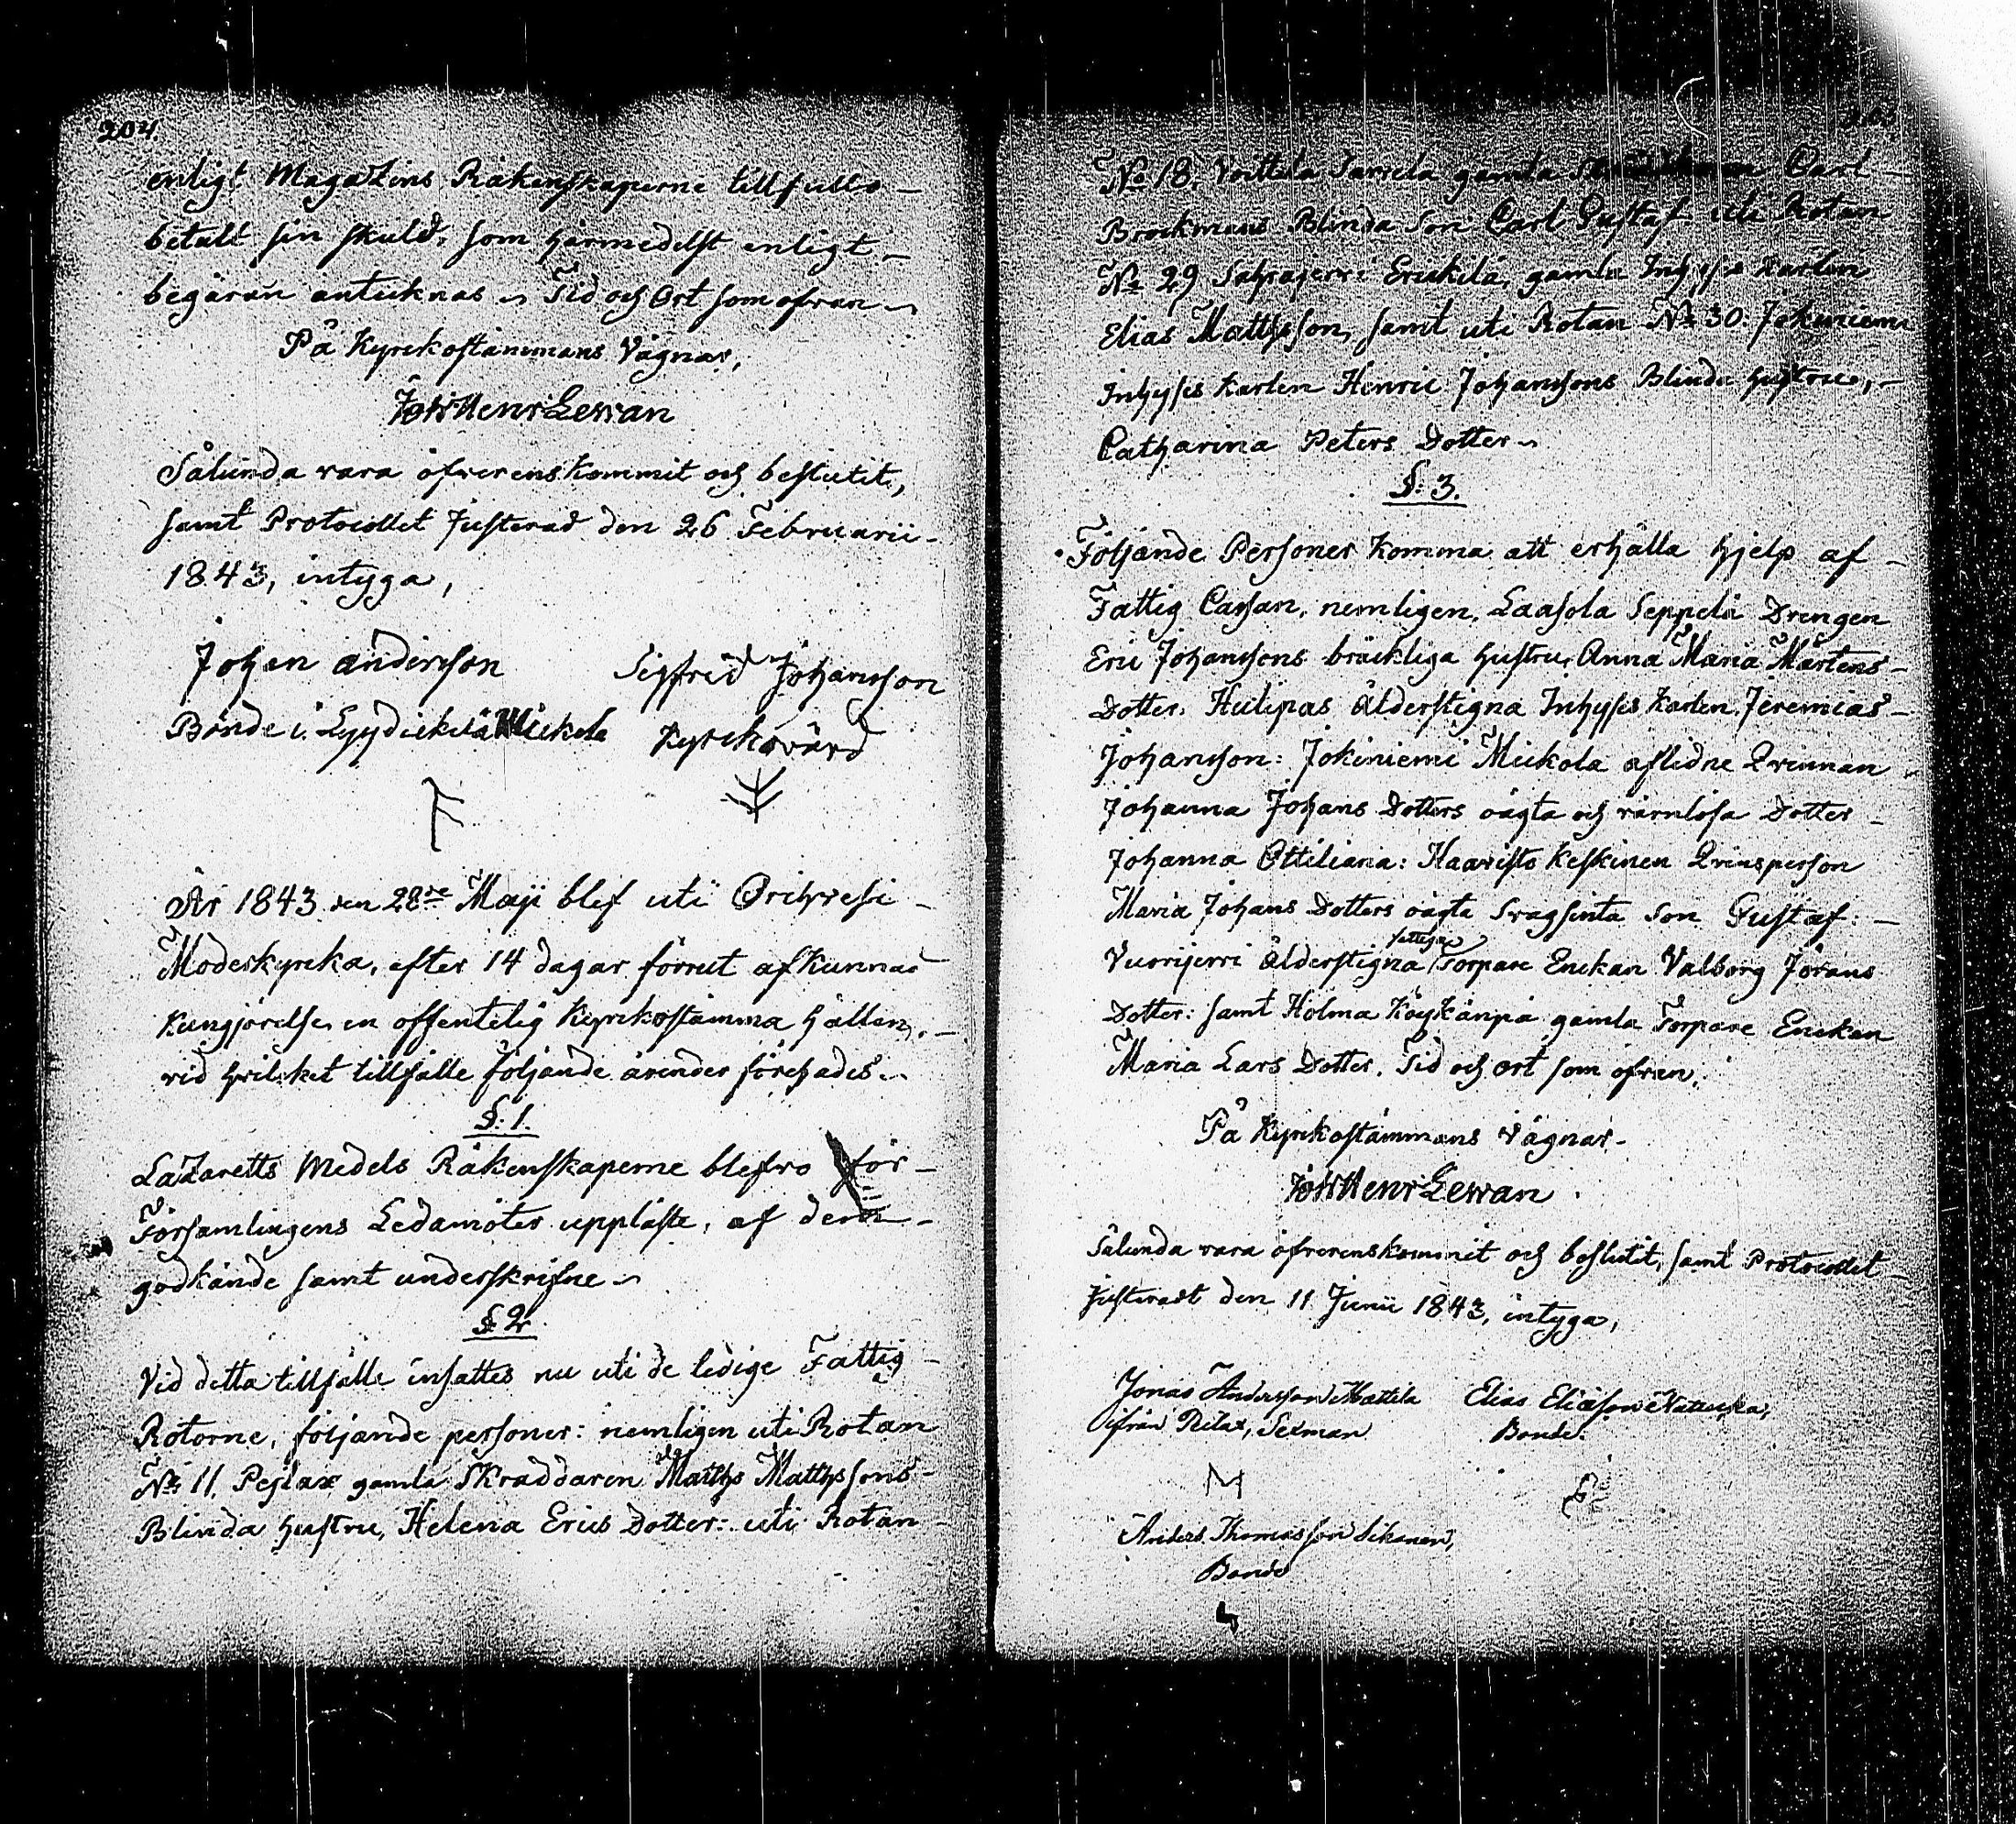 204
enligt Magazins Räkenskaperne tillfullo
betalt sin skuld, som härmedelst enligt
begäran antecknas Tid och Ort som ofvan
På Kyrckostämmans Vägnar,
Joh Henr Levan
Sålunda vara öfverenskommit och beslutit,
samt Protocollet Justerad den 26 Februarii
1843, intyga,
Johan andersson Sigfred Johansson
Bonde i Lyydickilä Mickola Kyrckovärd
År 1843 den 28de Maji blef uti Orihvesi
Moderkyrcka, efter 14 dagar förrut afkunnad
Kungjörelse, en offentelig Kyrckostämma hållen,
vid hvilcket tillfälle följande ärender förehades
§: 1.
Lazaretts Medels Räkenskaperne blefvo för
Församlingens Ledamöter uppläste, af dem
godkände samt underskrifne
§ 2
Vid detta tillfälle insattes nu uti de ledige Fattig
Rotorne, följande personer: nemligen uti Rotan
No 11. Pejlax gamla Skräddaren Matths Matthssons
Blinda hustru, Helena Erics Dotter: uti Rotan
No 18. Voittila gamla Carl
Brockmans Blinda Son Carl Gustaf uti Rotan
No 29 Sahrajervi Erickilä, gamla Inhyses karlen
Elias Mattsson, samt uti Rotan No 30. Jokiniemi
Inhyses Karlen Henric Johanssons Blinda hustru,
Catharina Peters Dotter
§: 3.
Följande Personer komma att erhålla hjelp af
Fattig Cassan, nemligen, Laasola Seppelä Drengen
Eric Johanssons bräckliga hustru Anna Maria Mårtens
Dotter: Hulipas Ålderstigna Inhyses Karlen Jeremias
Johansson: Jokiniemi Mickola aflidne Qvinnan
Johanna Johans Dotters oägta och värnlösa Dotter
Johanna Ottiliana: Haavisto Keskinen Qvinsperson
Maria Johans Dotters oägta svagsinta Son Gustaf:
Vuorijervi Ålderstigna fattiga Torpare Enckan Valborg Jörans
Dotter: samt Holma Köykänpä gamla Torpare Enckan
Maria Lars Dotter. Tid och ort som ofvan.
På Kyrckostämmans Vägnar
Joh Henr Levan
Sålunda vara öfverenskommit och beslutit, samt Protocollet
Justeradt den 11 Junii 1843, intyga,
Jonas Andersson Mattila Elias Eliasson
ifrån Sexman Bonde.
Anders Thomasson
Bonde